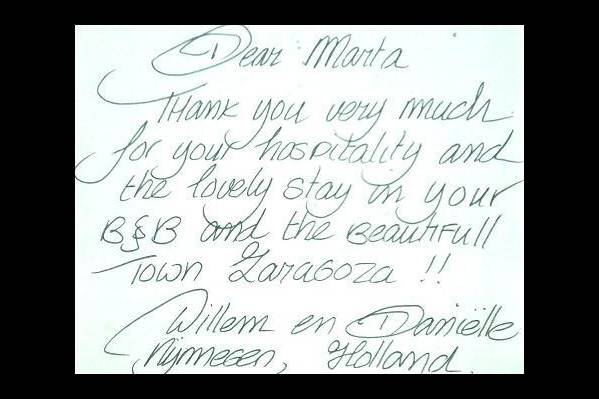 Dear Marta
Thank you very much
for your hospitality and
the lovely stay in your
B&B and the Beautifull
Town Zaragoza !!
Willem en Daniëlle
Nijmegen, Holland.